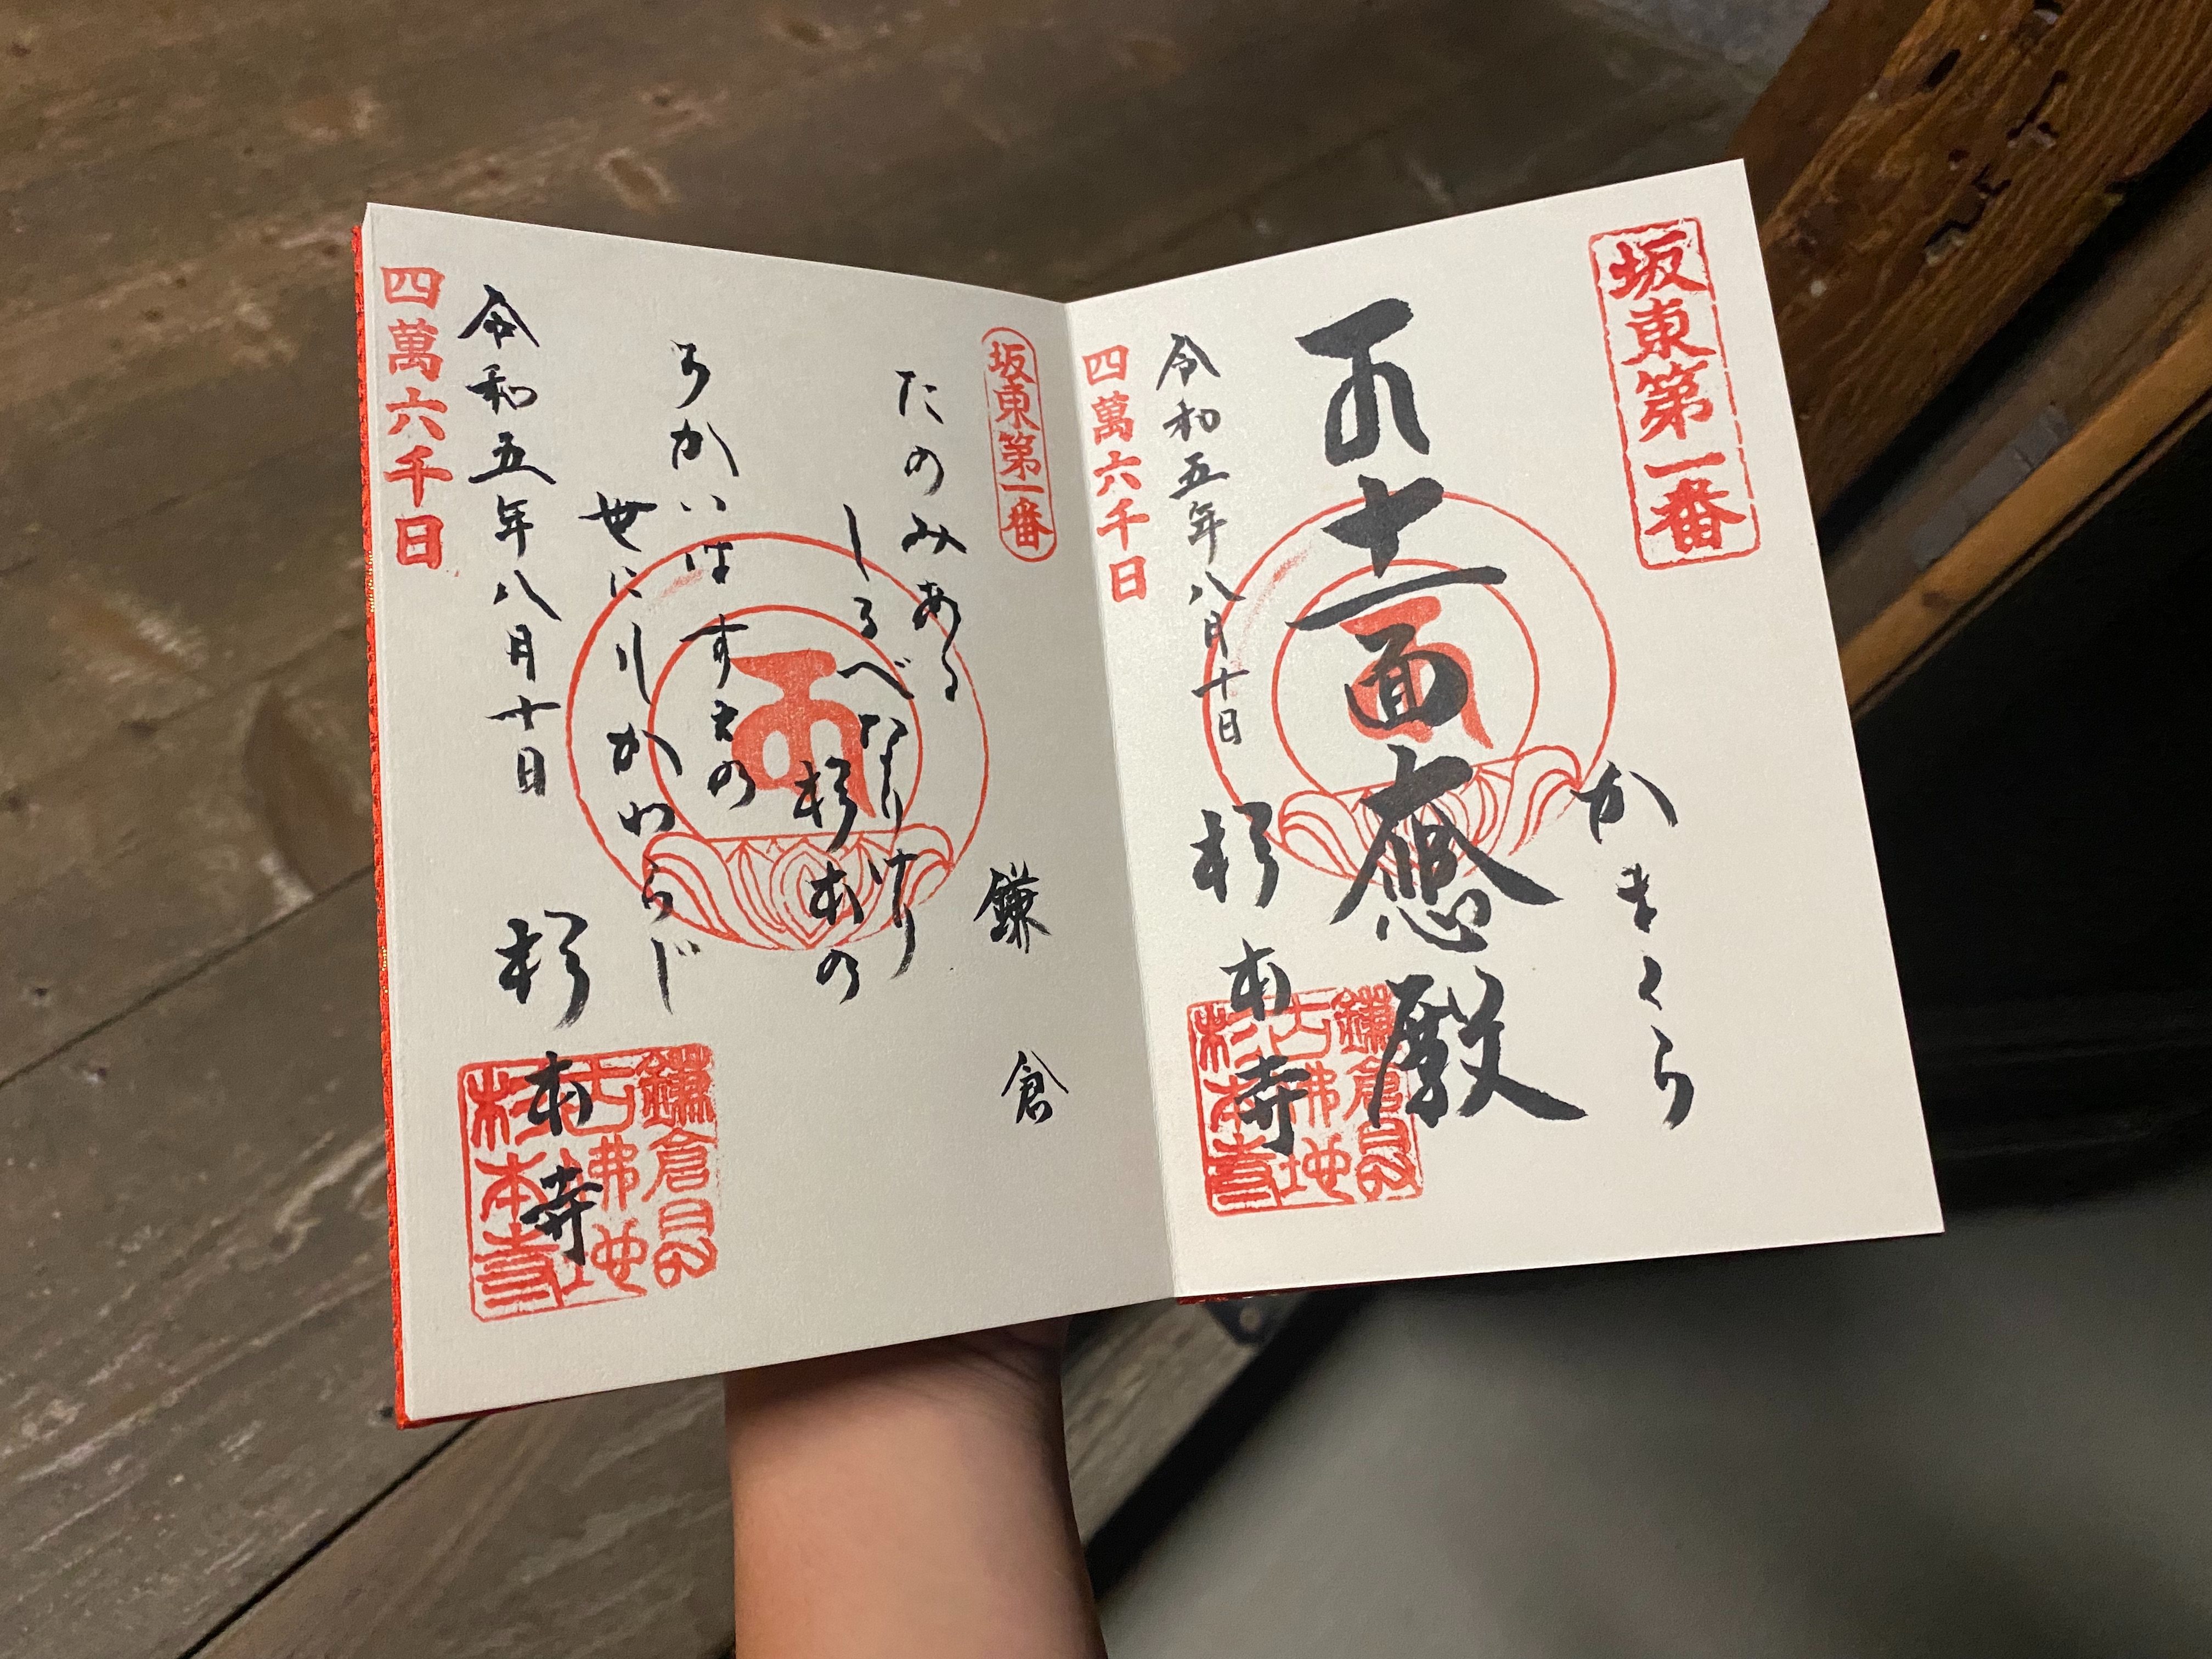 坂東第一番
かまくら
十一面大悲殿
杉本寺
令和五年八月十日
四萬六千日
鎌倉最
古佛地
杉本寺
坂東第一番
鎌倉
たのみある
しるべなりけり
杉本の
ちかいはすえの
世にもかわらじ
令和五年八月十日
杉本寺
四萬六千日
鎌倉最
古佛地
杉本寺